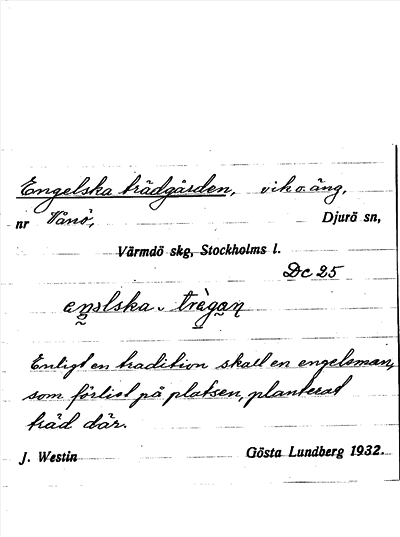 Engelska trädgården, vik o. äng,
nr Vånö, Djurö sn,
Värmdö skg, Stockholms l.
Dc 25
Enligt en tradition skall en engelsman,
som förlist på platsen, planterat
träd där.
J. Westin Gösta Lundberg 1932.